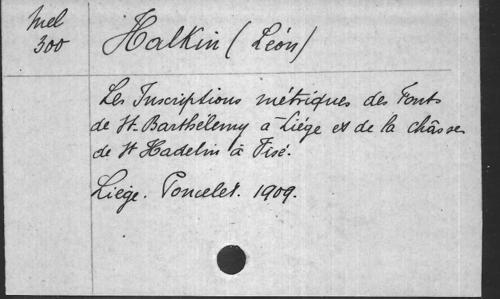 Mel
300
Halkin (Léon)
Les Inscriptions métriques des Fonts
de St-Barthélemy à Liége et de la châsse
de St Hadelin à Visé.
Liége. Poncelet. 1909.